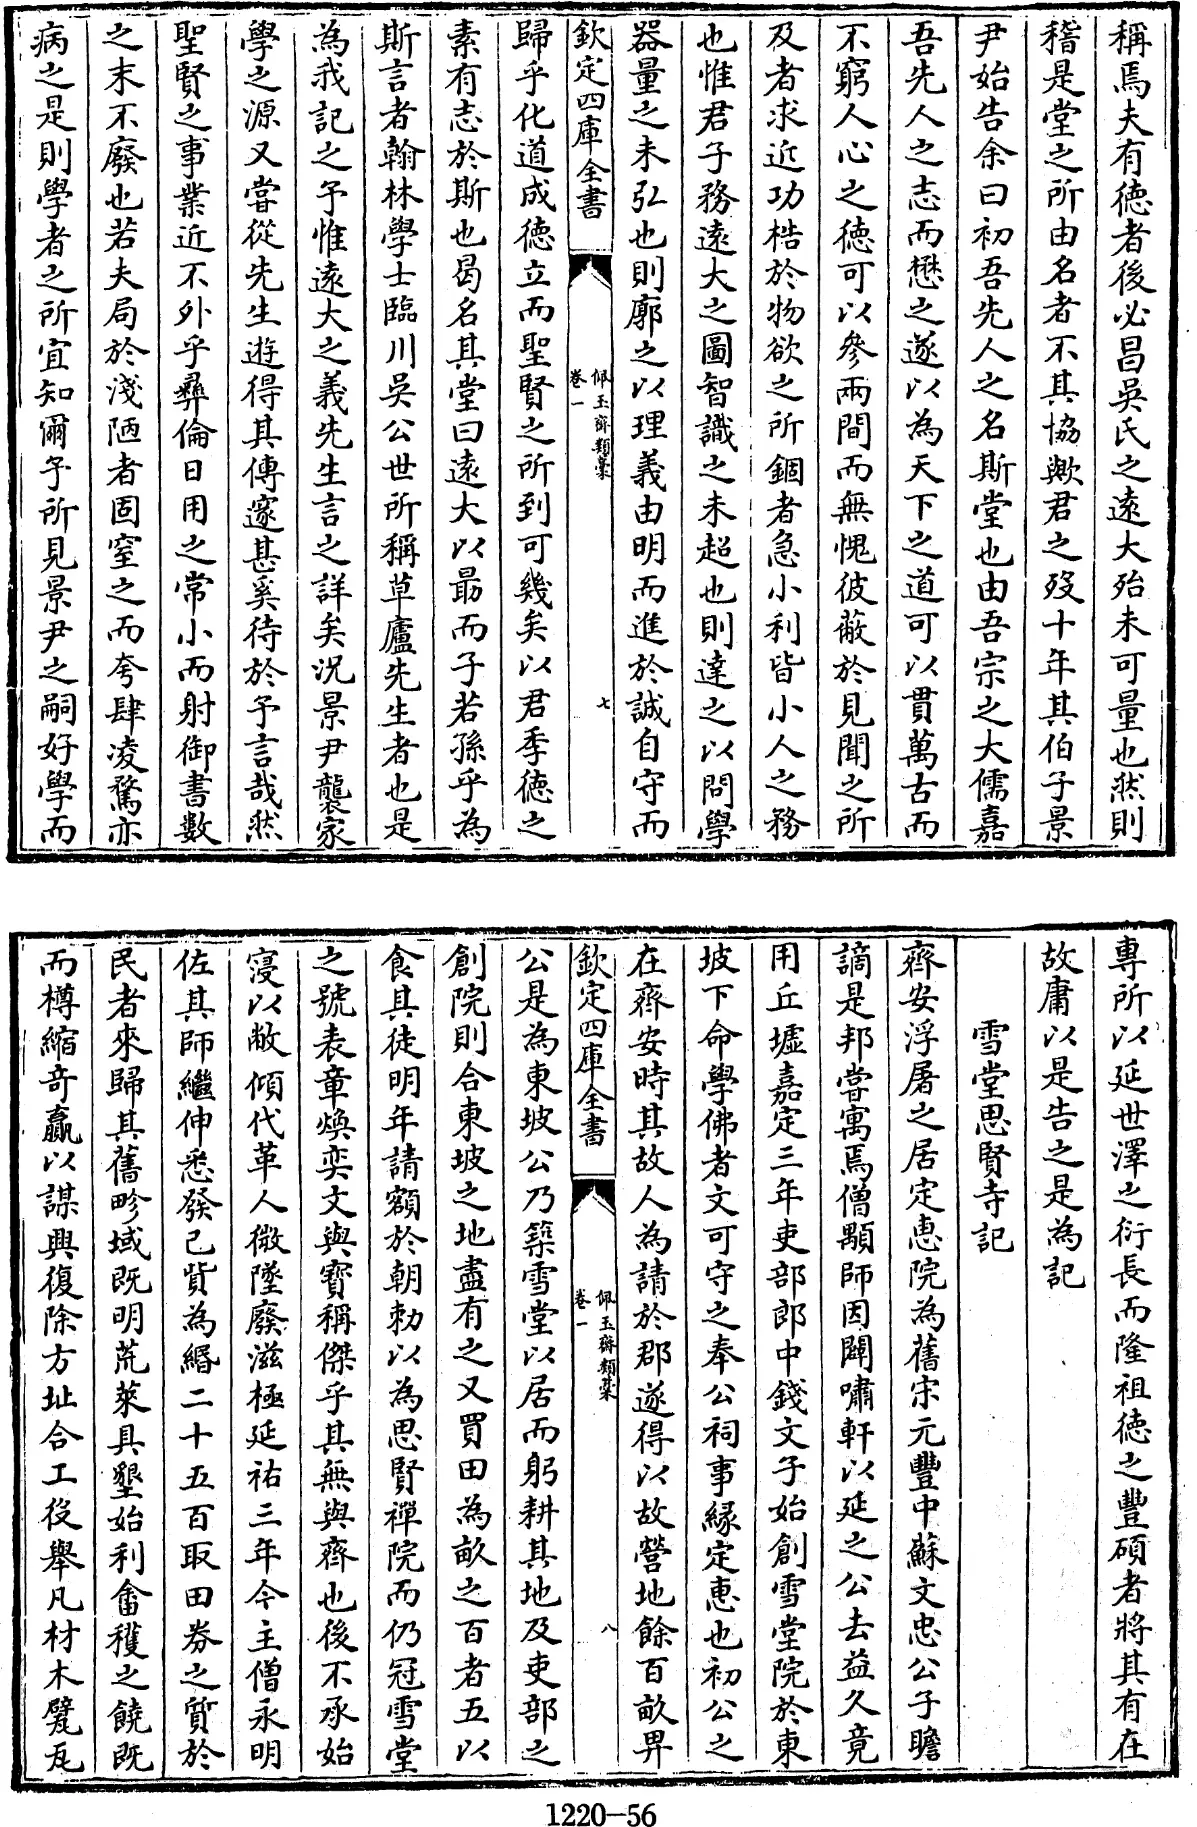 稱焉夫有德者後必昌吳氏之遠大殆未可量也然則
稽是堂之所由名者不其協歟君之歿十年其伯子景
尹始告余曰初吾先人之名斯堂也由吾宗之大儒嘉
吾先人之志而懋之遂以為天下之道可以貫萬古而
不窮人心之德可以參兩間而無愧彼蔽於見聞之所
及者求近功梏於物欲之所錮者急小利皆小人之務
也惟君子務遠大之圖智識之未超也則達之以問學
器量之未弘也則廓之以理義由明而進於誠自守而
欽定四庫全書
佩玉齋類藁
卷一
七
歸乎化道成德立而聖賢之所到可幾矣以君季德之
素有志於斯也曷名其堂曰遠大以勗而子若孫乎為
斯言者翰林學士臨川吳公世所稱草廬先生者也是
為我記之予惟遠大之義先生言之詳矣况景尹襲家
學之源又嘗從先生遊得其傳邃甚奚待於予言哉然
聖賢之事業近不外乎彞倫日用之常小而射御書數
之末不廢也若夫局於淺陋者固窒之而夸肆凌騖亦
病之是則學者之所宜知爾予所見景尹之嗣好學而
專所以延世澤之衍長而隆祖德之豐碩者將其有在
故庸以是告之是為記
雪堂思賢寺記
齊安浮屠之居定惠院為舊宋元豐中蘇文忠公子瞻
謫是邦嘗寓焉僧顒師因闢嘯軒以延之公去益久竟
用丘墟嘉定三年吏部郎中錢文子始創雪堂院於東
坡下命學佛者文可守之奉公祠事緣定惠也初公之
在齊安時其故人為請於郡遂得以故營地餘百畝畀
欽定四庫全書
佩玉齋類藁
卷一
八
公是為東坡公乃築雪堂以居而躬耕其地及吏部之
創院則合東坡之地盡有之又買田為畝之百者五以
食其徒明年請額於朝勑以為思賢禪院而仍冠雪堂
之號表章煥奕文與寶稱傑乎其無與齊也後不承始
寖以敝傾代革人微墜廢滋極延祐三年今主僧永明
佐其師繼伸悉發己貲為緡二十五百取田券之質於
民者來歸其舊畛域既明荒萊具墾始利畬穫之饒既
而樽縮奇贏以謀興復除方址合工役舉凡材木甓瓦
1220-56